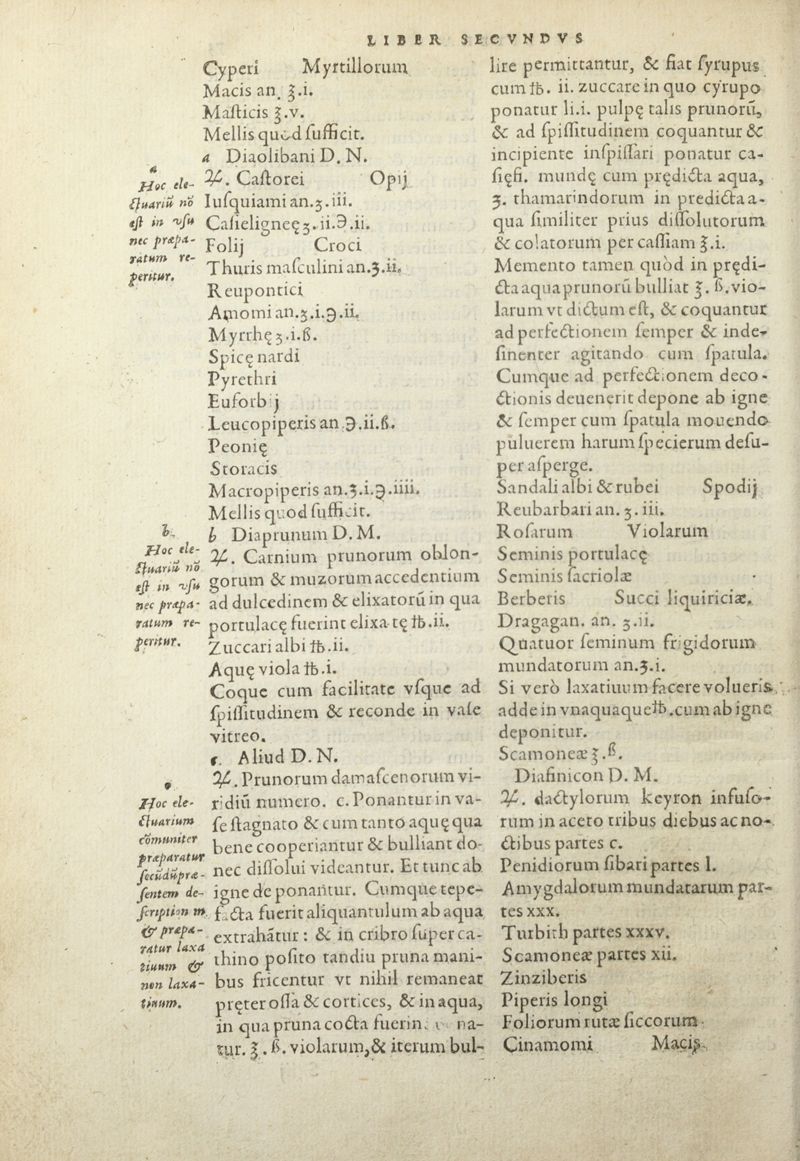 LIBER SECVNDVS
Cyperi Myrtillorum
Macis an. ℥.i.
Maſticis ℥.v.
Mellis quod ſufficit.
a Diaolibani D. N.
a
Hoc ele-
ctuariũ nõ
eſt in vſu
nec præpa-
ratum re-
peritur.
♃. Caſtorei Opij
Iuſquiami an.ʒ.iii.
Caſieligneęʒ.ii.℈.ii.
Folij Croci
Thuris maſculini an.ʒ.ii.
Reupontici
Amomi an.ʒ.i.℈.ii.
Myrrhęʒ.i.ß.
Spicę nardi
Pyrethri
Euforbij
Leucopiperis an.℈.ii.ß.
Peonię
Storacis
Macropiperis an.ʒ.i.℈.iiii.
Mellis quod ſufficit.
b Diaprunum D. M.
b.
Hoc ele-
ctuariũ nõ
eſt in vſu
nec præpa-
ratum re-
peritur.
♃. Carnium prunorum oblon-
gorum & muzorum accedentium
ad dulcedinem & elixatorũ in qua
portulacę fuerint elixatę ℔.ii.
Zuccari albi ℔.ii.
Aquę viola ℔.i.
Coque cum facilitate vſque ad
ſpiſſitudinem & reconde in vaſe
vitreo.
c. Aliud D. N.
c
Hoc ele-
ctuarium
cõmuniter
præparatur
ſecũdũ præ-
ſentem de-
ſcriptionẽ
& præpa-
ratur laxa
tiuum &
non laxa-
tiuum.
♃. Prunorum damaſcenorum vi-
ridiũ numero. c. Ponantur in va-
ſe ſtagnato & cum tanto aquę qua
bene cooperiantur & bulliant do-
nec diſſolui videantur. Et tunc ab
igne deponantur. Cumque tepe-
facta fuerit aliquantulum ab aqua
extrahãtur : & in cribro ſuper ca-
thino poſito tandiu pruna mani-
bus fricentur vt nihil remaneat
pręter oſſa & cortices, & in aqua,
in qua pruna cocta fuerin. na-
tur. ℥. ß. violarum, & iterum bul-
lire permittantur, & fiat ſyrupus
cum ℔. ii. zuccare in quo cyrupo
ponatur li.i. pulpę talis prunorũ,
& ad ſpiſſitudinem coquantur &
incipiente inſpiſſari ponatur ca-
ſięfi. mundę cum prędicta aqua,
ʒ. thamarindorum in predicta a-
qua ſimiliter prius diſſolutorum
& colatorum per caſſiam ℥.i.
Memento tamen quòd in prędi-
cta aqua prunorũ bulliat ℥. ß. vio-
larum vt dictum eſt, & coquantur
ad perfectionem ſemper & inde-
ſinenter agitando cum ſpatula.
Cumque ad perfectionem deco-
ctionis deuenerit depone ab igne
& ſemper cum ſpatula mouendo
puluerem harum ſpecierum deſu-
per aſperge.
Sandali albi & rubei Spodij
Reubarbari an. ʒ. iii.
Roſarum Violarum
Seminis portulacę
Seminis ſacriolæ
Berberis Succi liquiriciæ.
Dragagan. an. ʒ.ii.
Quatuor ſeminum frigidorum
mundatorum an.ʒ.i.
Si verò laxatiuum facere volueris
adde in vnaquaque ℔. cum ab igne
deponitur.
Scamoneæ ℥.ß.
Diafinicon D. M.
♃. dactylorum keyron infuſo-
rum in aceto tribus diebus ac no-
ctibus partes c.
Penidiorum ſibari partes l.
Amygdalorum mundatarum par-
tes xxx.
Turbith partes xxxv.
Scamoneæ partes xii.
Zinziberis
Piperis longi
Foliorum rutæ ſiccorum
Cinamomi Macis